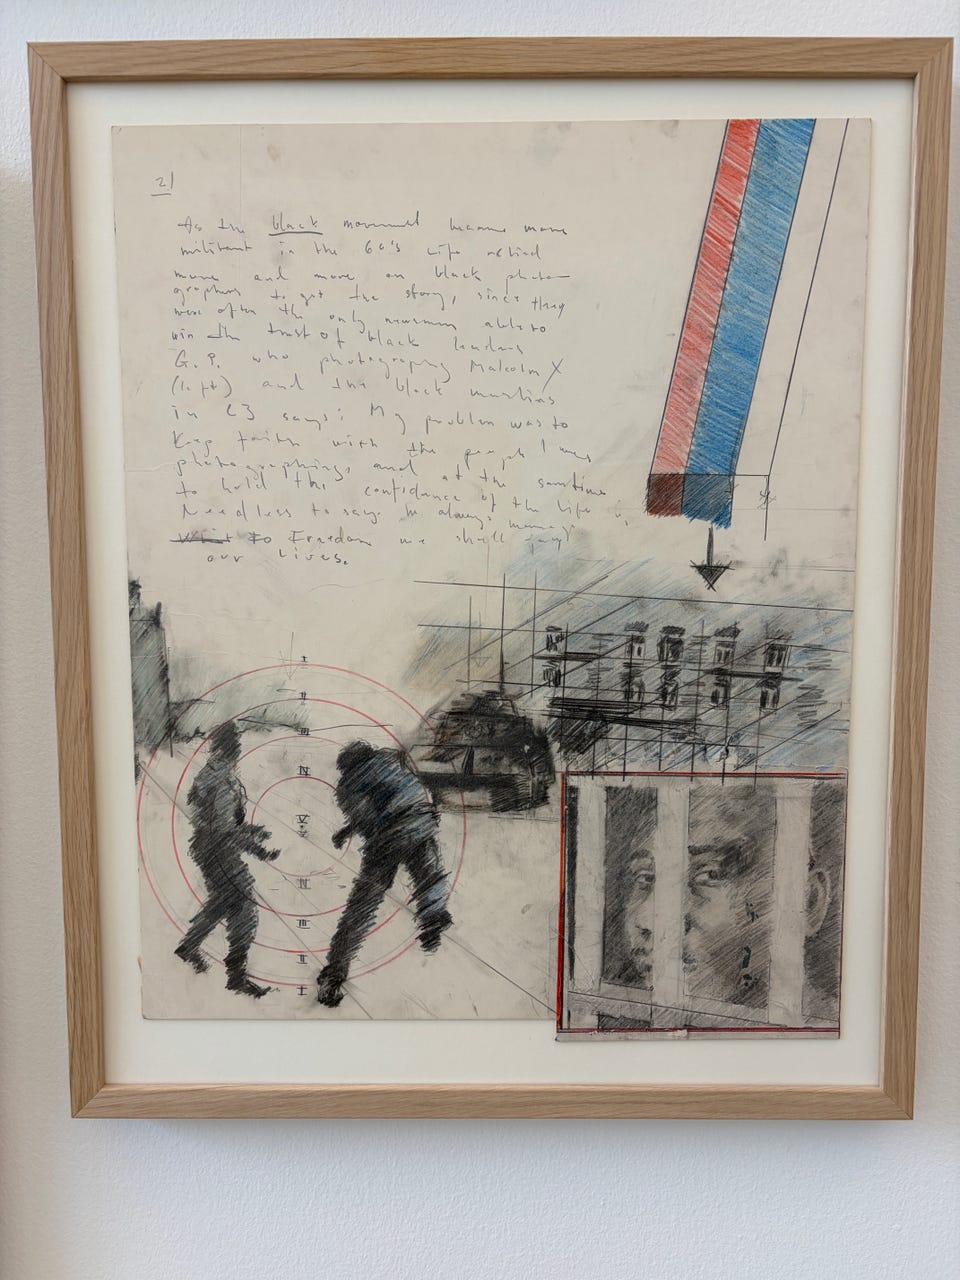 21
As the black movement became more
militant in the 60's Life relied
more and more on black photo-
graphers to get the story, since they
were often the only newsmen able to
win the trust of black leaders
G. P. who photography Malcolm X
(left) and the black muslims
in 63 says: My problem was to
Keep faith with the people I was
photographing and at the sametime
to hold the confidence of the Life
Needless to say he always
to Freedom we shall
our lives.
I
II
III
IV
V
IV
III
II
I